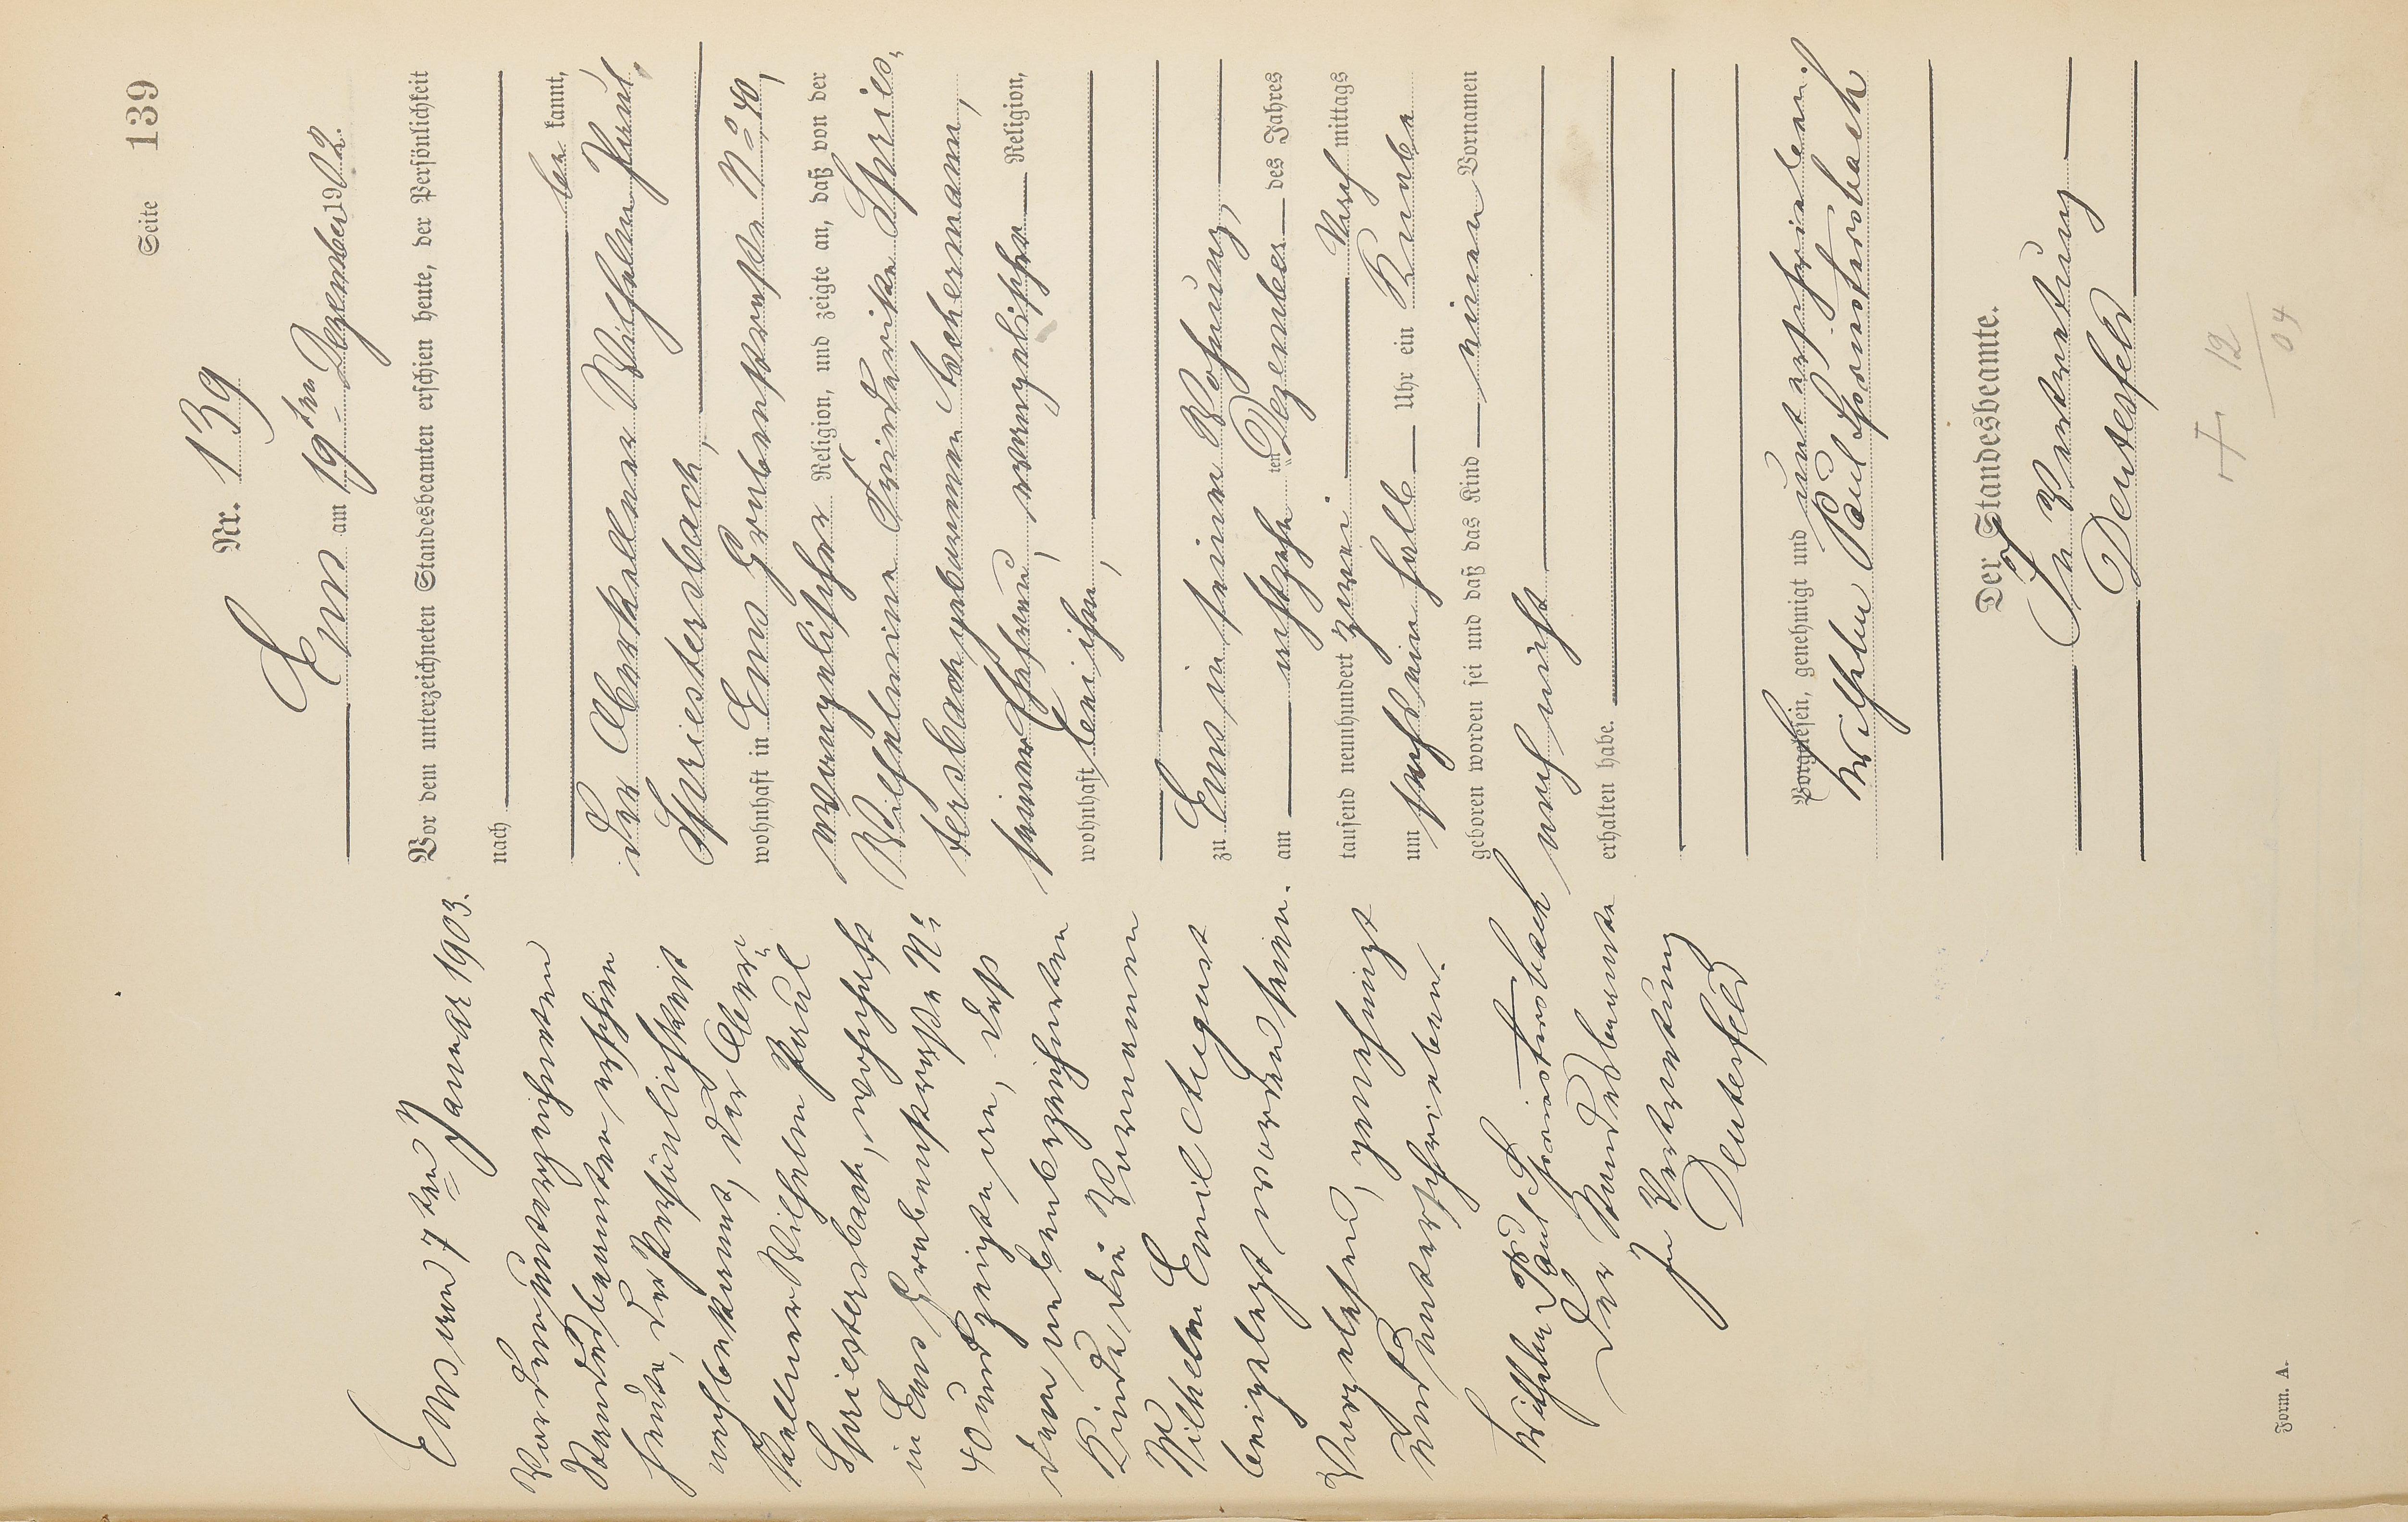 Seite 139
Nr. 139
Ems am 19ten Dezember 1902.
Vor dem unterzeichneten Standesbeamten erschien heute, der Persönlichkeit
nach
be kannt,
der Oberkellner Wilhelm Paul
Spriestersbach,
wohnhaft in Ems Grabenstrasse No 40,
evangelischer Religion, und zeigte an, daß von der
Wilhelmine Friederike Spries-
tersbach geborenen Ackermann,
seiner Ehefrau, evangelischer Religion,
wohnhaft bei ihm,
zu Ems in seiner Wohnung,
am achtzehn ten Dezember des Jahres
tausend neunhundert zwei Nach mittags
um sechs ein halb Uhr ein Knabe
geboren worden sei und daß das Kind einen Vornamen
noch nicht
erhalten habe.
Vorgelesen, genehmigt und unterschrieben.
Wilhelm Paul Spriestersbach
Der Standesbeamte.
In Vertretung
Deutesfeld
† 12
04
Ems am 7ten Januar 1903.
Vor dem unterzeichneten
Standesbeamten erschien
heute, der Persönlichkeit
nach bekannt, der Ober-
kellner Wilhelm Paul
Spriestersbach, wohnhaft
in Ems Grabenstrasse No
40 und zeigte an, daß
dem nebenbezeichneten
Kinde die Vornamen
Wilhelm Emil August
beigelegt worden seien.
Vorgelesen, genehmigt
und unterschrieben.
Wilhelm Paul Spriestersbach
Der Standesbeamte
In Vertretung
Deutesfeld
Form. A.